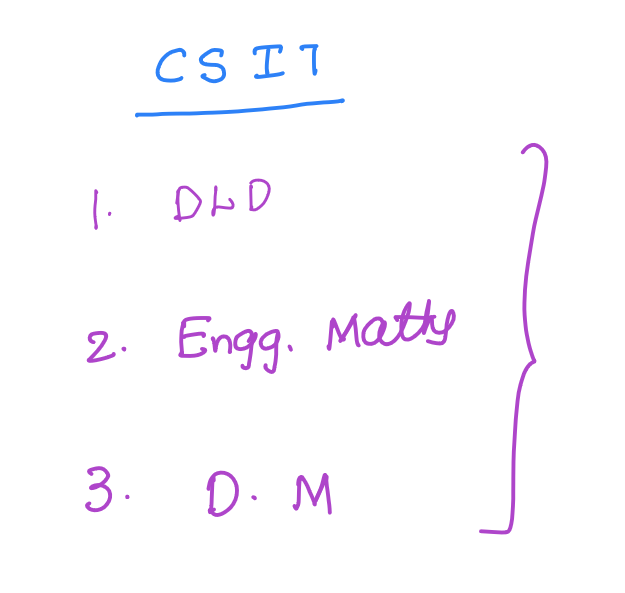 CSIT
1. DLD
2. Engg. Maths
3. D. M